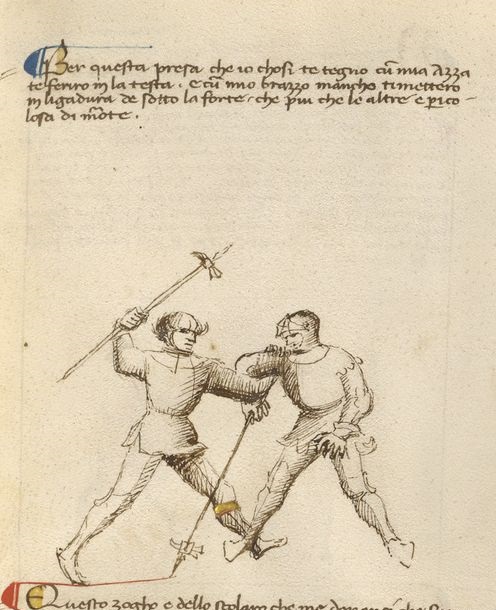 Per questa presa che io chosi te tegno cū mia Azza
te feriro in la testa. E cū mio brazzo mancho ti mettero
in ligadura de sotto la forte. che piu che le altre e perico-
losa di morte.
Questo zogho e dello scolaro che me